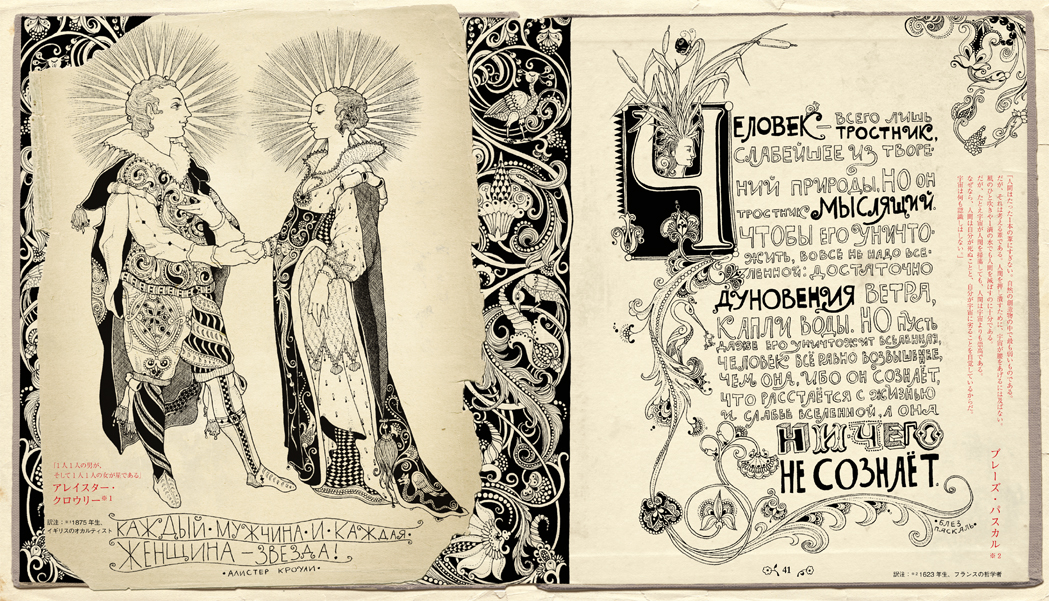 「1人1人の男が、
そして1人1人の女が星である」
アレイスター・
クロウリー※1
訳注：※1 1875年生、
イギリスのオカルティスト
КАЖДЫЙ·МУЖЧИНА·И·КАЖДАЯ·
ЖЕНЩИНА—ЗВЕЗДА!
·АЛИСТЕР КРОУЛИ·
ЧЕЛОВЕК — ВСЕГО ЛИШЬ
ТРОСТНИК,
СЛАБЕЙШЕЕ ИЗ ТВОРЕ-
НИЙ ПРИРОДЫ. НО ОН
ТРОСТНИК МЫСЛЯЩИЙ.
ЧТОБЫ ЕГО УНИЧТО-
ЖИТЬ, ВОВСЕ НЕ НАДО ВСЕ-
ЛЕННОЙ: ДОСТАТОЧНО
ДУНОВЕНИЯ ВЕТРА,
КАПЛИ ВОДЫ. НО ПУСТЬ
ДАЖЕ ЕГО УНИЧТОЖИТ ВСЕЛЕННАЯ,
ЧЕЛОВЕК ВСЁ РАВНО ВОЗВЫШЕННЕЕ,
ЧЕМ ОНА, ИБО ОН СОЗНАЁТ,
ЧТО РАССТАЁТСЯ С ЖИЗНЬЮ
И СЛАБЕЕ ВСЕЛЕННОЙ, А ОНА
НИЧЕГО
НЕ СОЗНАЁТ.
·БЛЕЗ
ПАСКАЛЬ·
「人間はたった1本の葦にすぎない。自然の創造物の中で最も弱いものである。
だが、それは考える葦である。人間を押し潰すために、宇宙が腰をあげるには及ばない。
風のひと吹きや1滴の水でも人間を滅ぼすのに十分である。
だが、たとえ宇宙が人間を殲滅しても、人間は宇宙よりも崇高である。
なぜなら、人間は自分が死ぬことと、自分が宇宙に劣ることを自覚しているからだ。
宇宙は何も意識しはしない。」
ブレーズ・パスカル ※2
41
訳注：※2 1623年生、フランスの哲学者